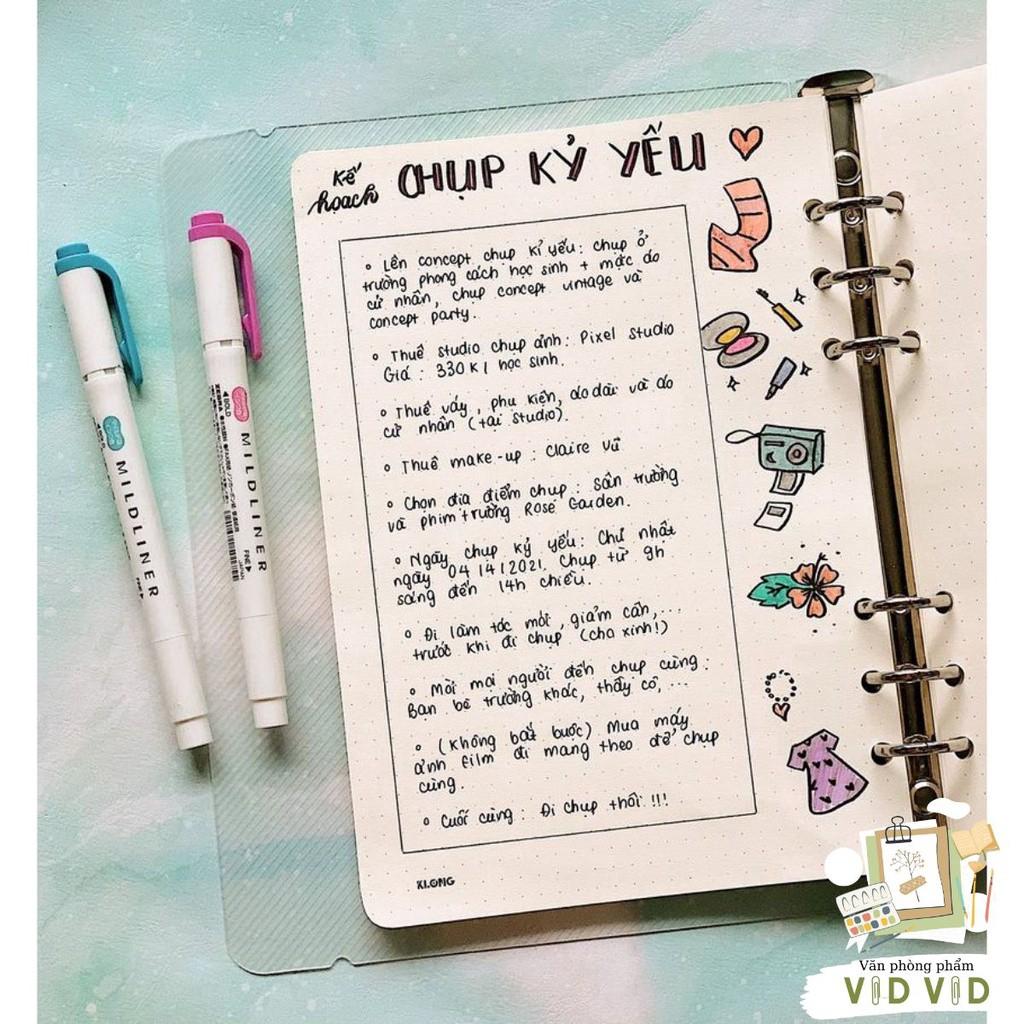 Kế hoạch
CHỤP KỶ YẾU
Lên concept chụp kỉ yếu: chụp ở
trường phong cách học sinh + mặc áo
cử nhân, chụp concept vintage và
concept party.
Thuê studio chụp ảnh: Pixel Studio
Giá: 330K/học sinh.
Thuê váy, phụ kiện, áo dài và áo
cử nhân (tại studio).
Thuê make-up: Claire Vũ
Chọn địa điểm chụp: Sân trường
và phim trường Rose Garden.
Ngày chụp kỷ yếu: Chủ nhật
ngày 04/4/2021. Chụp từ 9h
sáng đến 14h chiều.
Đi làm tóc mới, giảm cân,...
trước khi đi chụp (cho xinh!)
Mời mọi người đến chụp cùng:
Bạn bè trường khác, thầy cô,...
(Không bắt buộc) Mua máy
ảnh film đi mang theo để chụp
cùng.
Cuối cùng: Đi chụp thôi!!!
KLONG
MILDLINER
FINE
JAPAN
ZEBRA
BOLD
MILDLINER
Văn phòng phẩm
VID VID